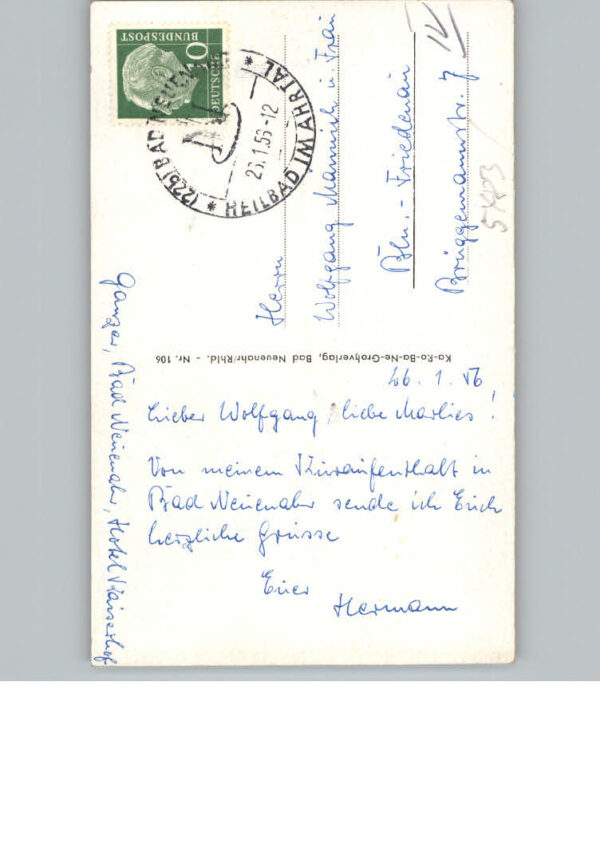 10
DEUTSCHE
BUNDESPOST
(22b) BAD NEUENAHR
26.1.56-12
* HEILBAD IM AHRTAL *
IV
Herrn
Wolfgang Mannich u. Frau
Bln.-Friedenau
Brüggemannstr. 7
Ka-Ro-Ba-Ne-Großverlag, Bad Neuenahr/Rhld. - Nr. 106
Ganzer, Bad Neuenahr, Hotel Kaiserhof
26. 1. 56
Lieber Wolfgang, liebe Marlies!
Von meinem Kuraufenthalt in
Bad Neuenahr sende ich Euch
herzliche Grüsse
Euer
Hermann